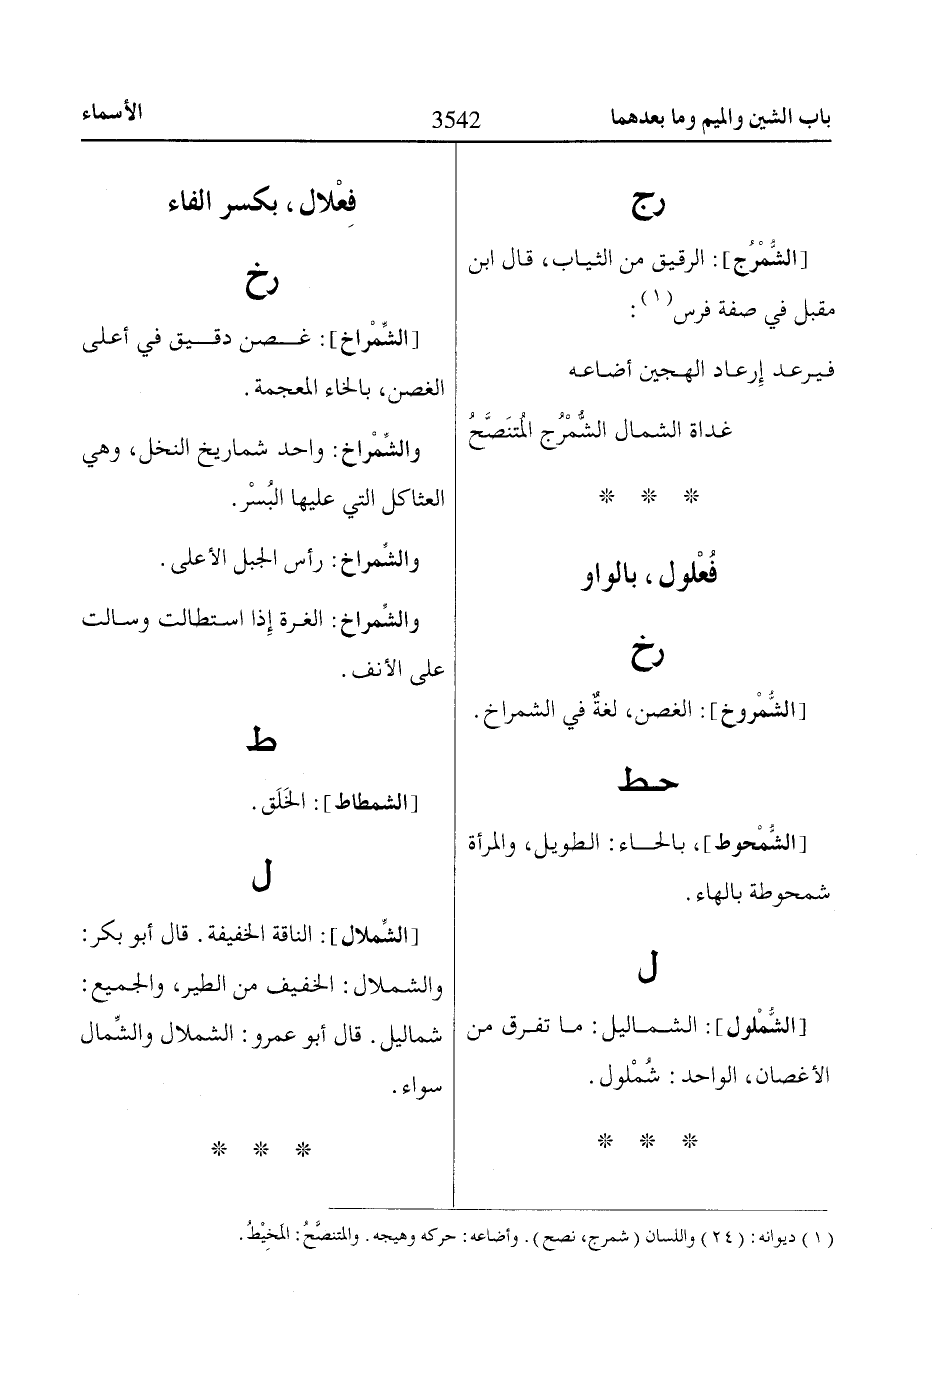 باب الشين والميم وما بعدهما
3542
الأسماء
رج
[الشُّمْرُج]: الرقيق من الثياب، قال ابن
مقبل في صفة فرس(١):
فيرعد إرعاد الهجين أضاعه
غداة الشمال الشُّمْرُج المُتَنَصَّحُ
* * *
فُعْلول، بالواو
رخ
[الشُّمْروخ]: الغصن، لغةٌ في الشمراخ.
حط
[الشُّمْحوط]، بالحاء: الطويل، والمرأة
شمحوطة بالهاء.
ل
[الشُّمْلول]: الشماليل: ما تفرق من
الأغصان، الواحد: شُمْلول.
* * *
فِعْلال، بكسر الفاء
رخ
[الشِّمْراخ]: غصن دقيق في أعلى
الغصن، بالخاء المعجمة.
والشِّمْراخ: واحد شماريخ النخل، وهي
العثاكل التي عليها البُسْر.
والشِّمراخ: رأس الجبل الأعلى.
والشِّمراخ: الغرة إذا استطالت وسالت
على الأنف.
ط
[الشمطاط]: الخَلَق.
ل
[الشِّملال]: الناقة الخفيفة. قال أبو بكر:
والشملال: الخفيف من الطير، والجميع:
شماليل. قال أبو عمرو: الشملال والشِّمال
سواء.
* * *
(١) ديوانه: (٢٤) واللسان (شمرج، نصح). وأضاعه: حركه وهيجه. والمتنصَّحُ: المَخِيْطُ.